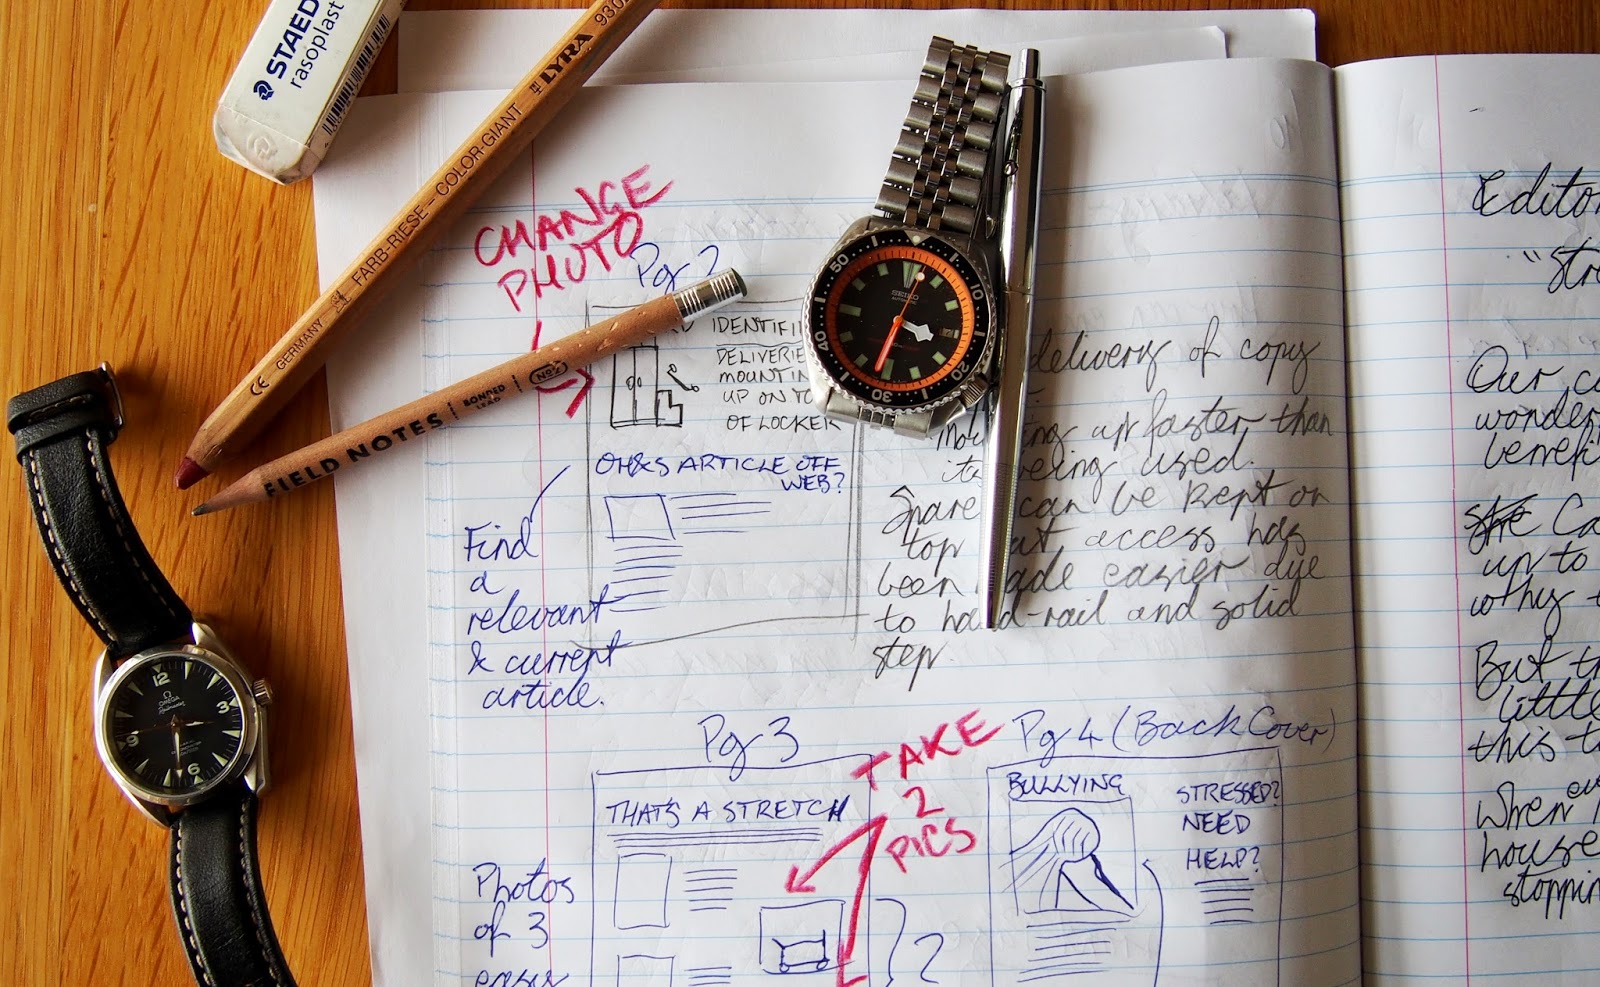 STAED
rasoplast
CE GERMANY FARB-RIESE - COLOR-GIANT LYRA 930
FIELD NOTES BONDED LEAD No 2
CHANGE
PHOTO
Pg 2
IDENTIFI
DELIVERIE
MOUNTIN
UP ON TO
OF LOCKER
OH&S ARTICLE OFF
WEB?
Find
a
relevant
& current
article.
50
10
20
30
40
SEIKO
AUTOMATIC
delivery of copy
ing up faster than
being used.
Spare can be kept on
top at access has
been ade easier due
to ha d-rail and solid
step.
12
3
6
9
Ω
OMEGA
Railmaster
Pg 3
THAT'S A STRETCH
Photos
of 3
TAKE
2
PICS
2
Pg 4 (Back Cover)
BULLYING
STRESSED?
NEED
HELP?
Edito
"Stre
Our c
wonder
benefi
She Ca
up to
why t
But t
little
this t
When
house
stoppin